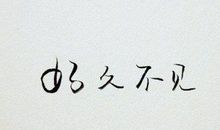 好久不见